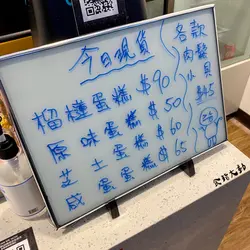 今日現貨
榴槤蛋糕 $90
原味蛋糕 $50
芝士蛋糕 $60
咸蛋蛋糕 $65
各款
肉鬆
小貝